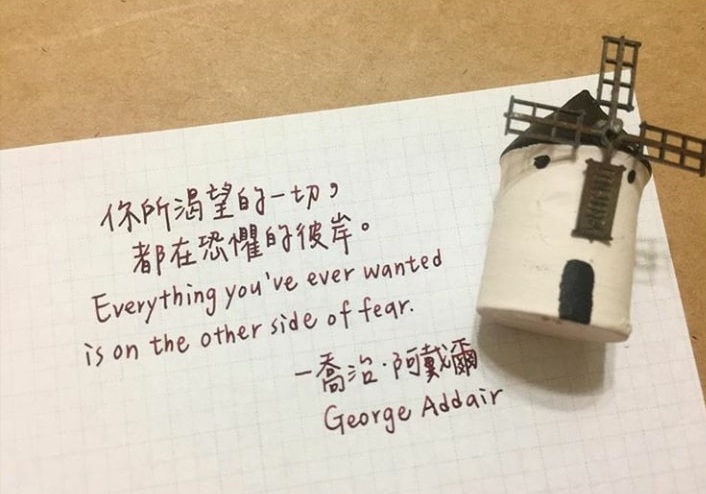 你所渴望的一切，
都在恐懼的彼岸。
Everything you've ever wanted
is on the other side of fear.
－喬治·阿戴爾
George Addair